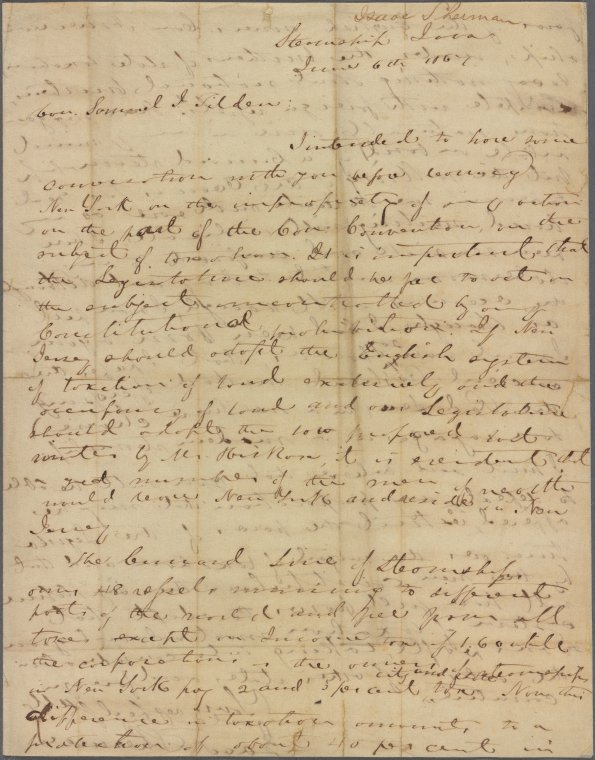 Isaac Sherman
Steamship Java
June 6th 1867
Hon. Samuel J Tilden:
I intended to have some
conversation with you before leaving
New York on the impropriety of any action
on the part of the Con Convention, on the
subject of taxation. It is important that
the Legislature should be free to act on
the subject uncontrolled by any
Constitutional prohibition. If New
Jersey should adopt the English system
of taxation of land exclusively and the
occupancy of land and our Legislature
should adopt the law prepared last
winter by Mr. it is evident that
vast number of the men of wealth
would leave New York and reside in New
Jersey
The Cunard Line of Steamships
owns 48 vessels running to different
ports of the world and free from all
taxes except an Income tax of
the corporation the owners of
city and steamships
in New York pay 2 and 3 per cent tax. Now this
difference in taxation amounts to a
protection of about 40 per cent in